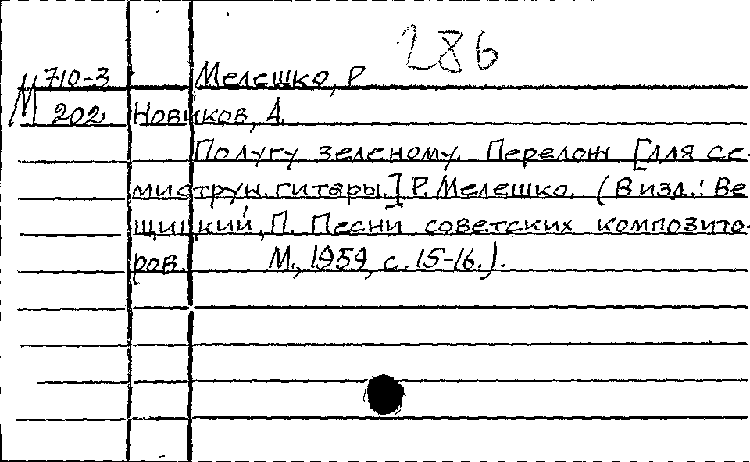 286
М 710-3 Мелешко, Р.
202 Новиков, А.
По лугу зеленому. Перелож [для се-
миструн. гитары.] Р. Мелешко. (В изд.: Ве-
щицкий, П. Песни советских композито-
ров. М., 1959, с. 15-16.).